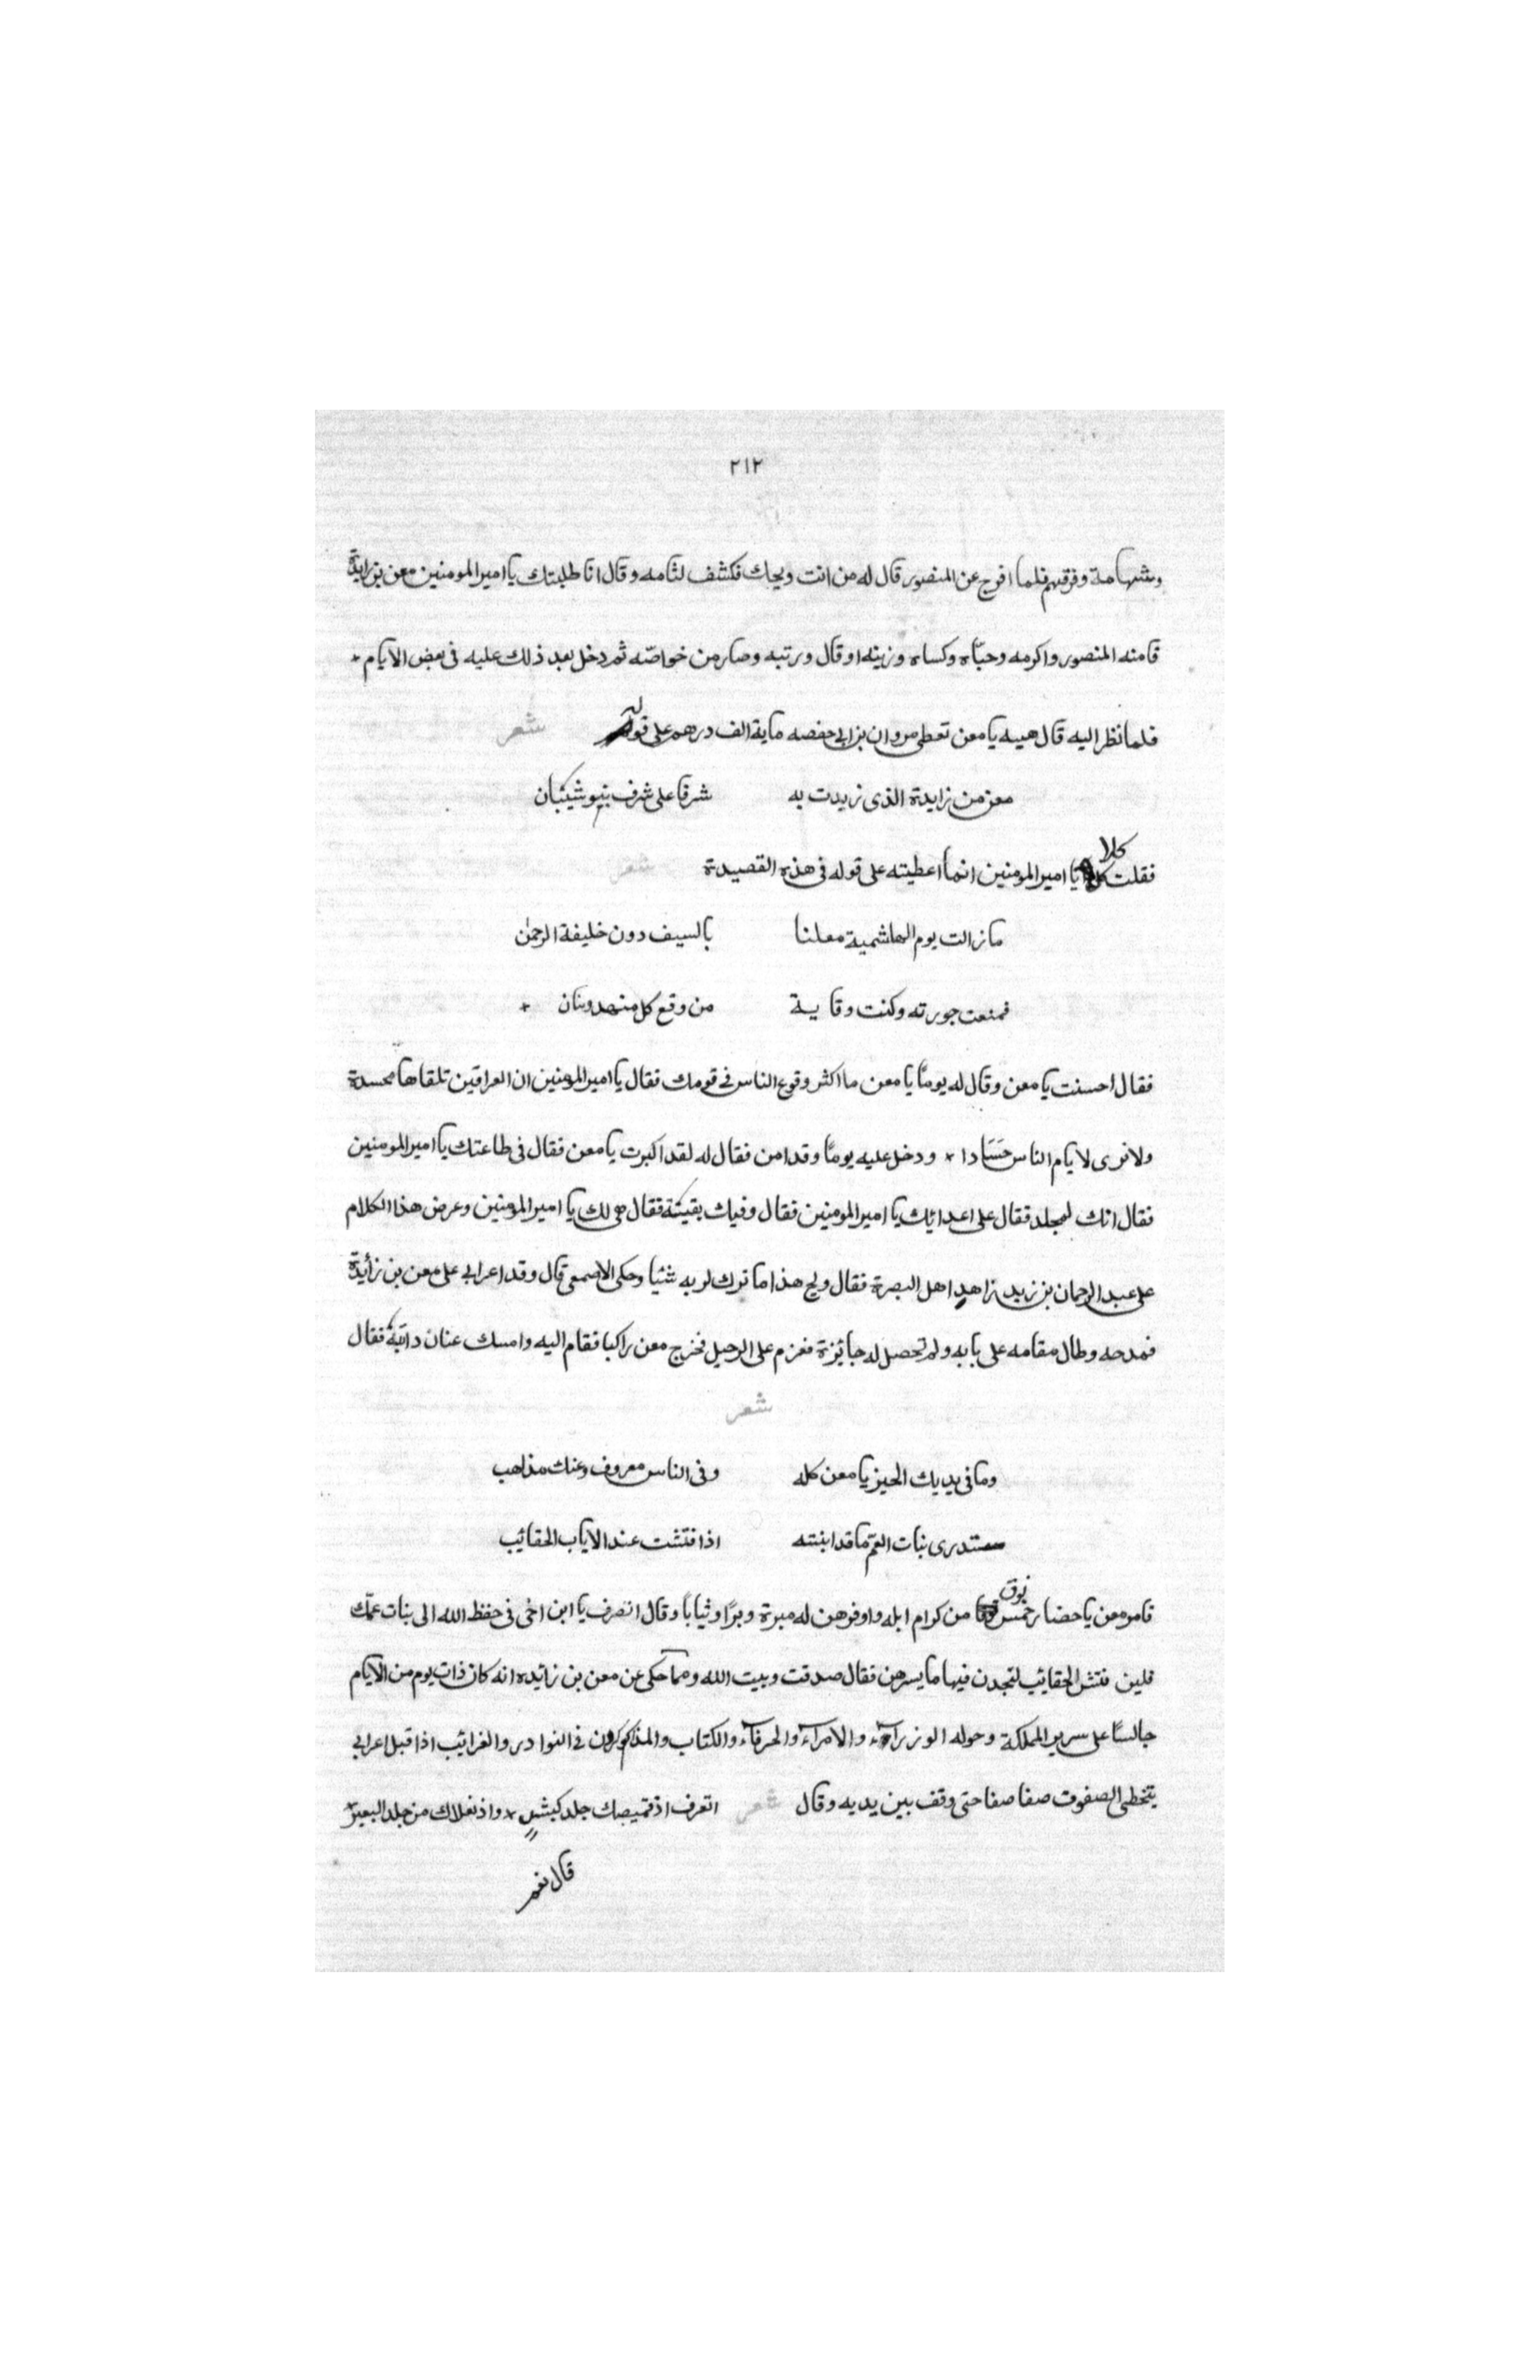 ٢١٢
وشهامة وفرقهم فلما افرج عن المنصور قال له من انت ويحك فكشف لثامه وقال انا طلبتك يا امير المومنين معن بن زايدة
فامنه المنصور واكرمه وحبّاه وكساه وزينه او قال ورتبه وصار من خواصّه ثم دخل بعد ذلك عليه فى بعض الايام
فلما نظر اليه قال هيه يا معن تعطى مروان بن ابى حفصه ماية الف درهم على قوله شعر
معن من زايدة الذى زيدت به شرفا على شرف بنو شيبان
فقلت كلا يا امير المومنين انما اعطيته على قوله فى هذه القصيدة شعر
ما زالت يوم الهاشمية معلنا بالسيف دون خليفة الرحمٰن
فمنعت حورته وكنت وقاية من وقع كل منهد وسنان
فقال احسنت يا معن وقال له يومًا يا معن ما اكثر وقوع الناس فى قومك فقال يا امير المومنين ان العراقين تلقاها محسدة
ولا ترى لايام الناس حَسَادا ودخل عليه يومًا وقد امن فقال له لقد اكبرت يا معن فقال فى طاعتك يا امير المومنين
فقال انك لمجلد فقال على اعدائك يا امير المومنين فقال وفيك بقيتة فقال هى لك يا امير المومنين وعرض هذا الكلام
على عبد الرحمان بن زيد زاهد اهل البصرة فقال ويح هذا ما ترك لربه شئيا وحكى الاصمعى قال وفد اعرابى على معن بن زأيدة
فمدحه وطال مقامه على بابه ولم تحصل له جائزة فعزم على الرحيل فخرج معن راكبا فقام اليه وامسك عنان دابّة فقال
شعر
وما فى يديك الخير يا معن كله وفى الناس معروف وعنك مذاهب
ستدرى بنات العمّ ما قد ابنته اذا فتشت عند الاياب الحقائب
فامر معن ياحضار خمس نوق من كرام ابله واوفرهن له مبرة وبرًا وثيابًا وقال انصرف يا ابن اخى فى حفظ الله الى بنات عمّك
فلين فتش الحقائب لتجدن فيها ما يسرهن فقال صدقت وبيت الله ومما حكى عن معن بن زائده انه كان ذات يوم من الايام
جالسًا على سرير المملكة وحوله الوزراء والامراء والحرفاء والكتاب والمذاكرون فى النوادر والغرائب اذ اقبل اعرابى
يتخطى الصفوف صفا صفا حتى وقف بين يديه وقال شعر اتعرف اذ قميصك جلد كبش واذ نعلاك من جلد البعير
قال نعم